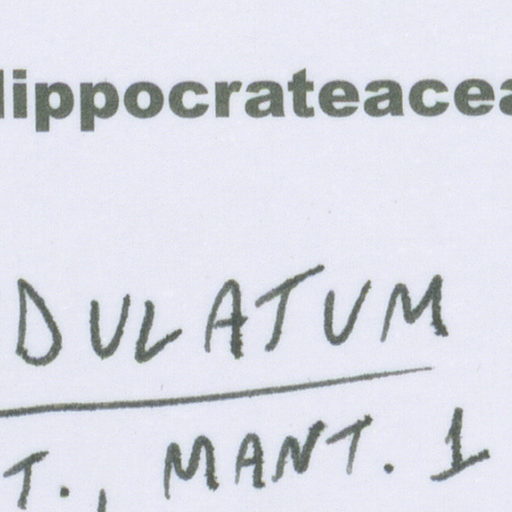 Hippocrateacea
DULATUM
T., MANT. 1